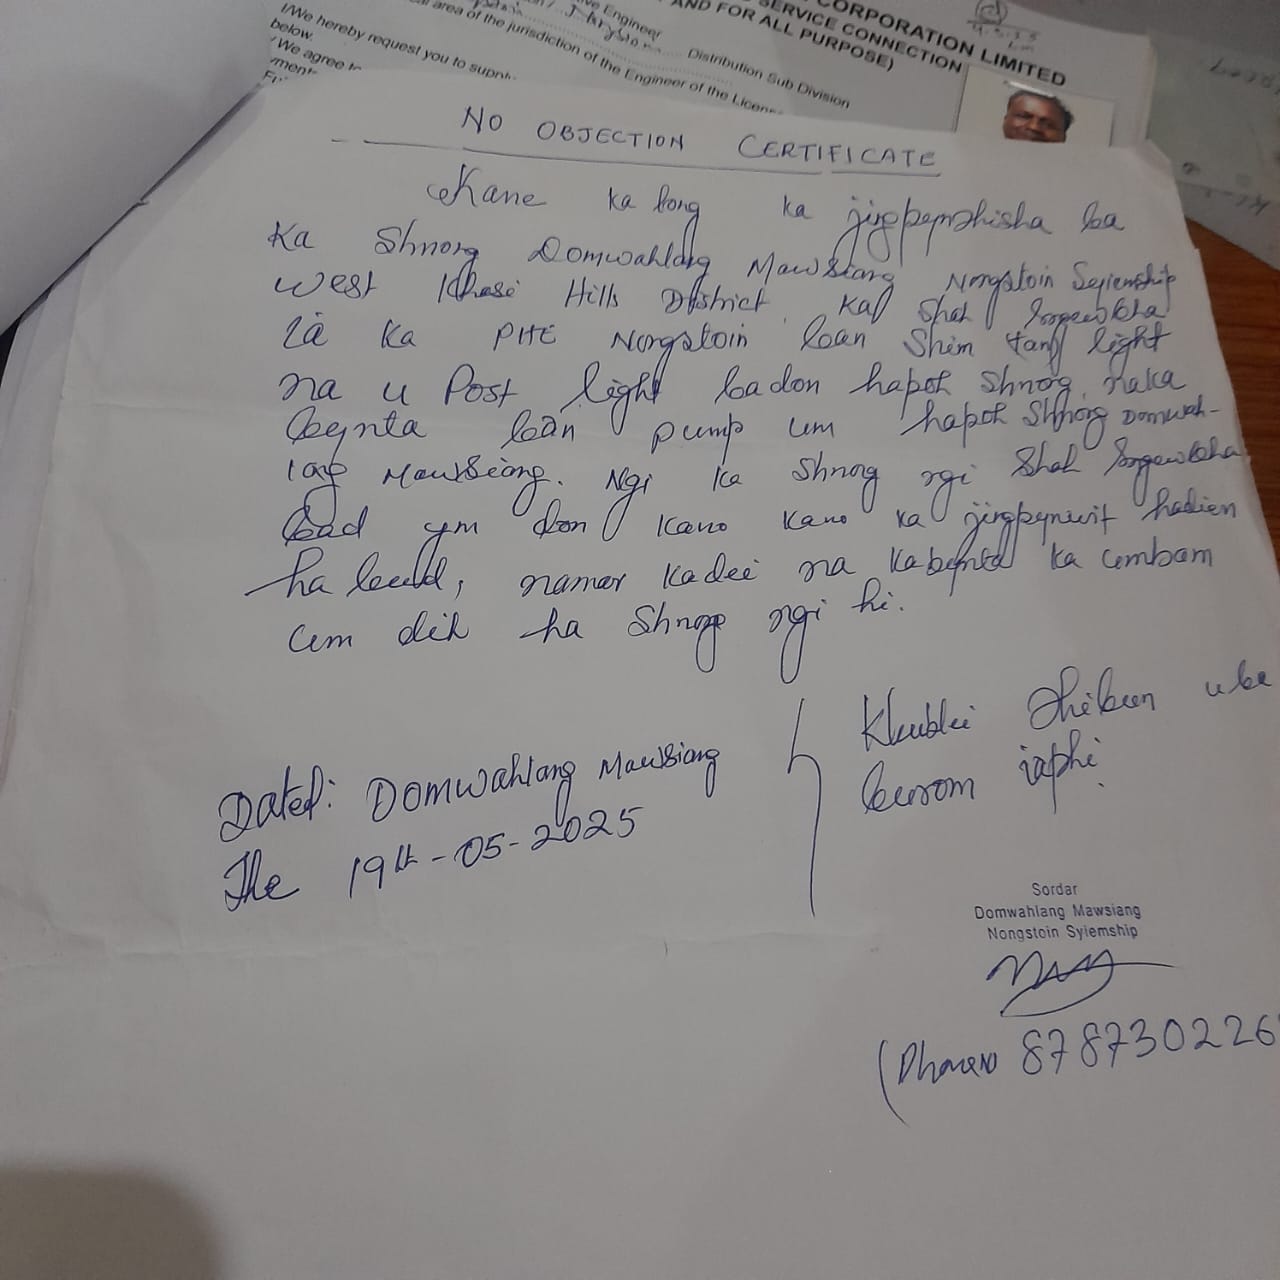 CORPORATION LIMITED
SERVICE CONNECTION
AND FOR ALL PURPOSE)
Engineer
Distribution Sub Division
area of the jurisdiction of the Engineer of the
I/We hereby request you to
below.
We agree to
NO OBJECTION CERTIFICATE
Kane ka long ka jingpynshisha ba
Ka Shnong Domwahlang Mawsiang Nongstoin Syiemship
West Khasi Hills District Ka Shah sngewbha
Ia Ka PHE Nongstoin ban Shim tang light
na u Post light badon hapoh Shnong naka
bynta ban pump um hapoh Shnong Domwah-
lang Mawsiang. Ngi ka Shnong ngi Shah sngewbha
bad ym don kano kano ka jingpynwit hadien
ha bud, namar kadei na kabynta ka umbam
um dih ha Shnong ngi hi.
Khublei Shibun uba
burom iaphi.
Dated: Domwahlang Mawsiang
The 19th-05-2025
Sordar
Domwahlang Mawsiang
Nongstoin Syiemship
(Phone No 878730226